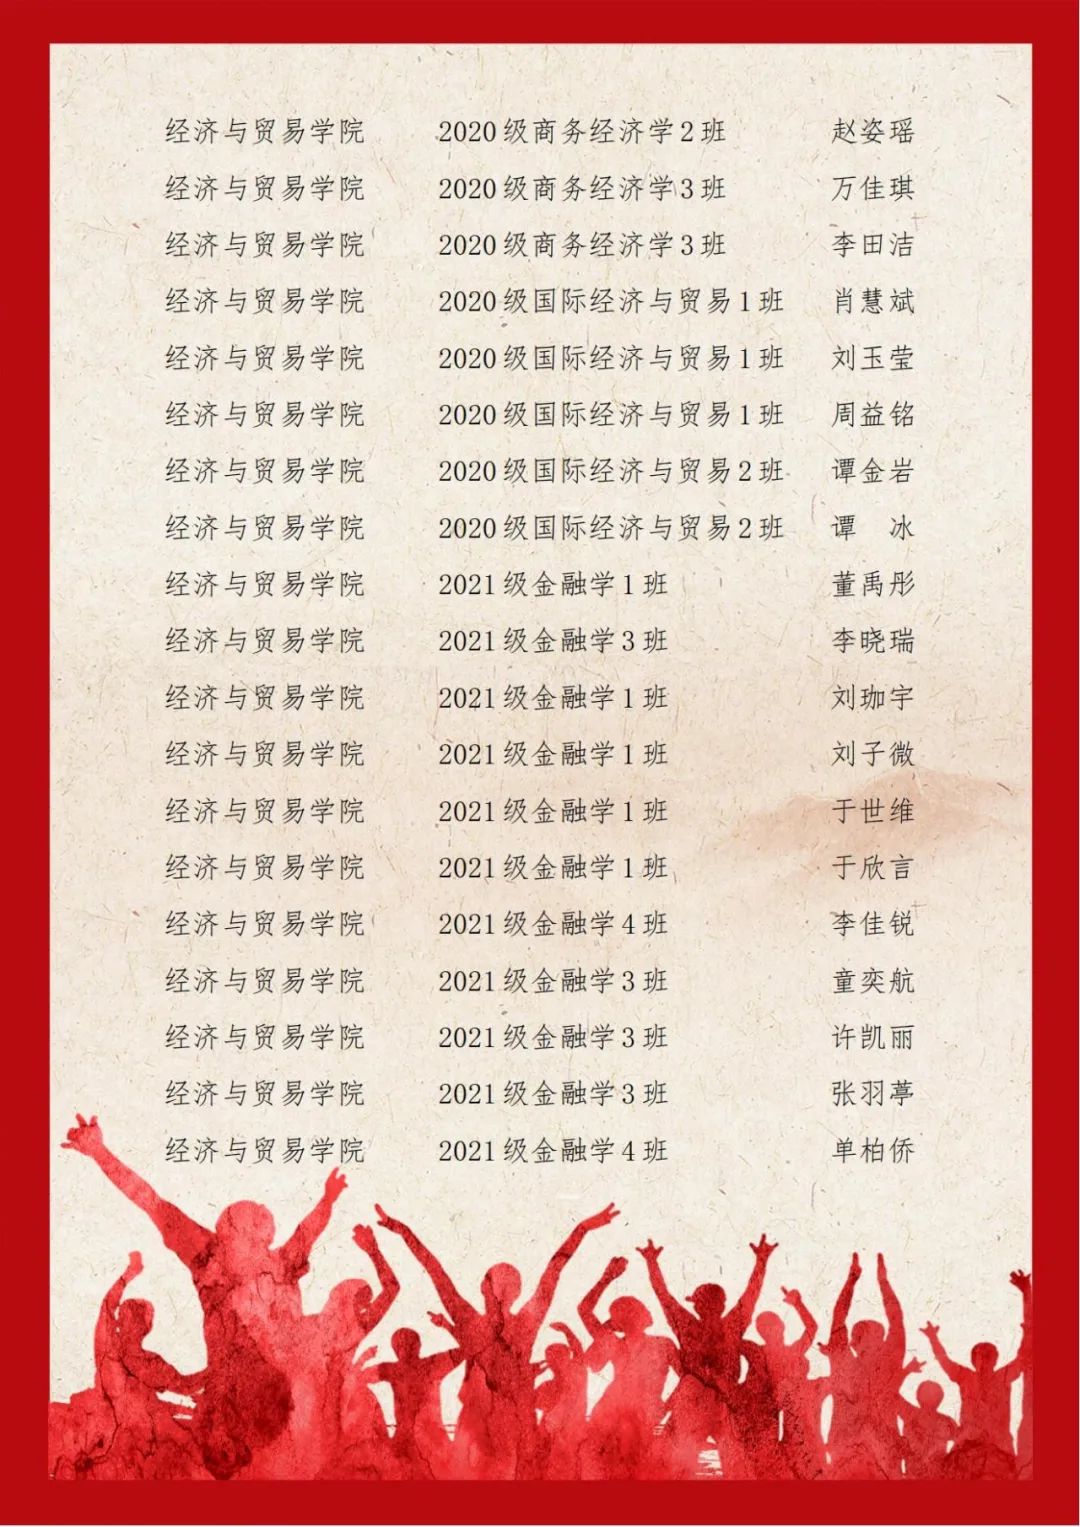 经济与贸易学院 2020级商务经济学2班 赵姿瑶
经济与贸易学院 2020级商务经济学3班 万佳琪
经济与贸易学院 2020级商务经济学3班 李田洁
经济与贸易学院 2020级国际经济与贸易1班 肖慧斌
经济与贸易学院 2020级国际经济与贸易1班 刘玉莹
经济与贸易学院 2020级国际经济与贸易1班 周益铭
经济与贸易学院 2020级国际经济与贸易2班 谭金岩
经济与贸易学院 2020级国际经济与贸易2班 谭 冰
经济与贸易学院 2021级金融学1班 董禹彤
经济与贸易学院 2021级金融学3班 李晓瑞
经济与贸易学院 2021级金融学1班 刘珈宇
经济与贸易学院 2021级金融学1班 刘子微
经济与贸易学院 2021级金融学1班 于世维
经济与贸易学院 2021级金融学1班 于欣言
经济与贸易学院 2021级金融学4班 李佳锐
经济与贸易学院 2021级金融学3班 童奕航
经济与贸易学院 2021级金融学3班 许凯丽
经济与贸易学院 2021级金融学3班 张羽葶
经济与贸易学院 2021级金融学4班 单柏侨